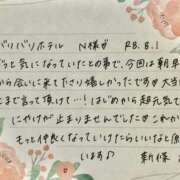 バリバリホテル N様が R8.8.1
ずっと気になっていたとの事で、今回は朝早
から会いに来てださり嬉しかったです 大当
とまで言って頂いて…! はじめから超元気で
にやけが止まりませんでした♡これか
もっと仲良くなっていけたらいいなと
います♪